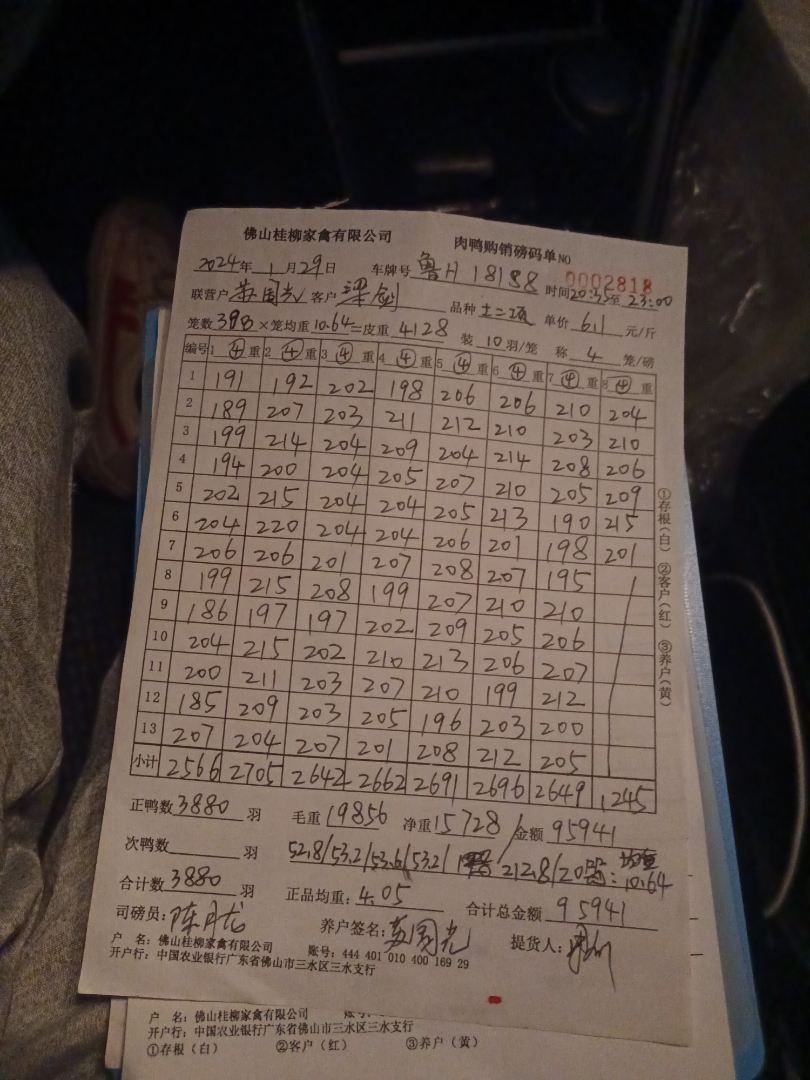 佛山桂柳家禽有限公司 肉鸭购销磅码单NO 0002818
2024年1月29日 车牌号 鲁H 18158 时间20:35至23:00
联营户 苏国光 客户 梁剑 品种 土二项 单价 6.1 元/斤
笼数388×笼均重10.64=皮重 4128 装10羽/笼 称 4 笼/磅
编号 1 ④ 重 2 ④ 重 3 ④ 重 4 ④ 重 5 ④ 重 6 ④ 重 7 ④ 重 8 ④ 重
1 191 192 202 198 206 206 210 204
2 189 207 203 211 212 210 203 210
3 199 214 204 209 204 214 208 206
4 194 200 204 205 207 210 205 209
5 202 215 204 204 205 213 190 215
6 204 220 204 204 206 201 198 201
7 206 206 201 207 208 207 195
8 199 215 208 199 207 210 210
9 186 197 197 202 209 205 206
10 204 215 202 210 213 206 207
11 200 211 203 207 210 199 212
12 185 209 203 205 196 203 200
13 207 204 207 201 208 212 205
小计 2566 2705 2642 2662 2691 2696 2649 1245
①存根(白) ②客户(红) ③养户(黄)
正鸭数3880 羽 毛重19856 净重15728 金额95941
次鸭数 羽 52.8/53.2/53.6/53.2/ 212.8/20 : 10.64
合计数3880 羽 正品均重:4.05 合计总金额 95941
司磅员: 养户签名:苏国光 提货人:
户 名:佛山桂柳家禽有限公司 账号:444 401 010 400 169 29
开户行:中国农业银行广东省佛山市三水区三水支行
户 名:佛山桂柳家禽有限公司
开户行:中国农业银行广东省佛山市三水区三水支行
①存根(白) ②客户(红) ③养户(黄)